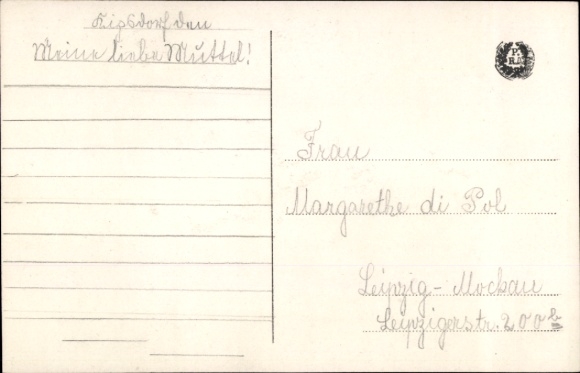 Kipsdorf den
Meine liebe Muttel!
Frau
Margarethe di Pol
Leipzig-Mockau
Leipzigerstr. 200 b